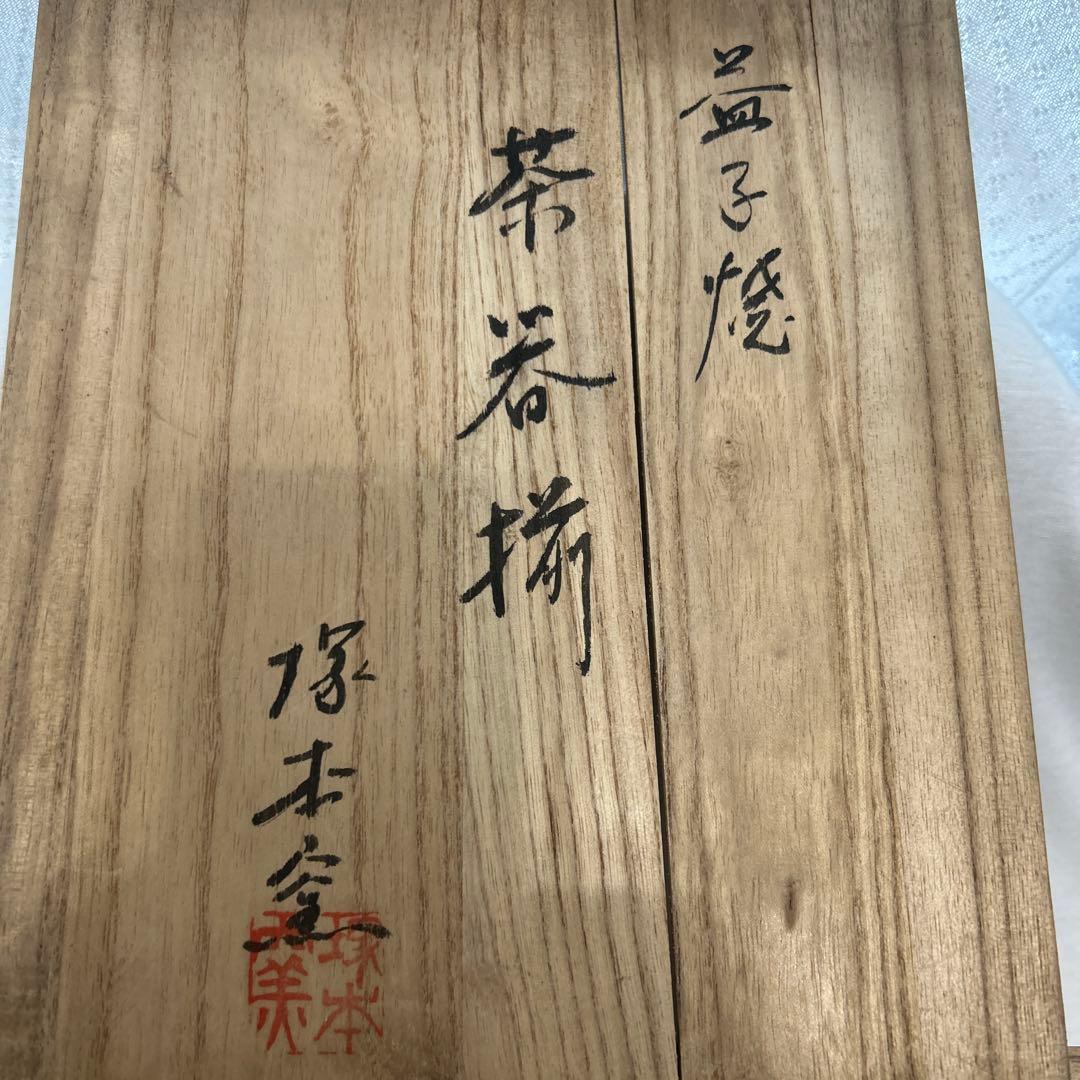 益子焼
茶器揃
塚本窯
塚本